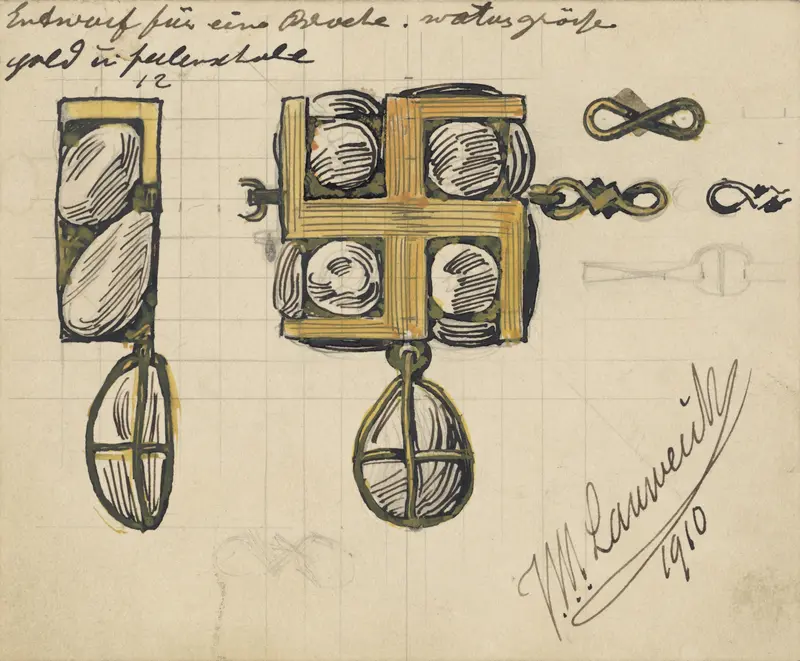 Entwurf für eine Broche. naturgröße
gold u perlenschale
12
J.M. Lauweriks
1910